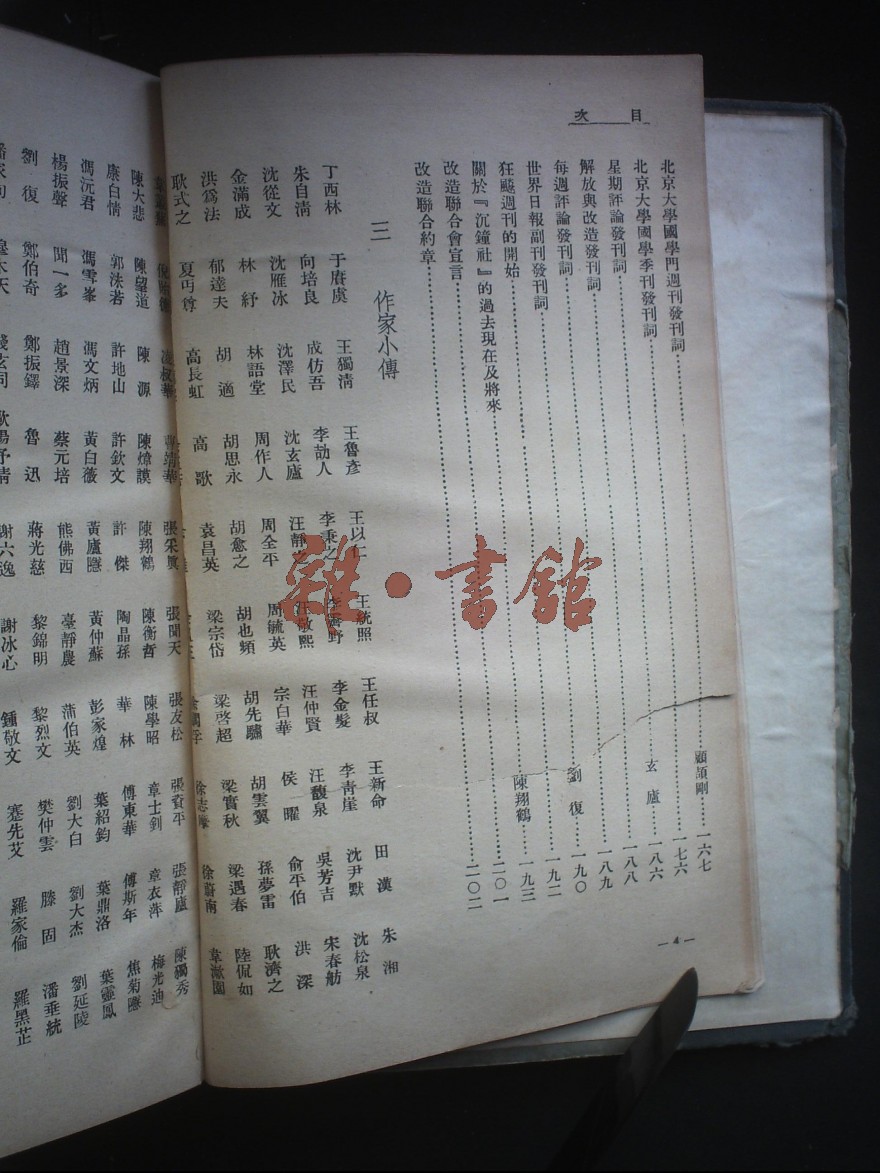 目次
北京大學國學門週刊發刊詞……顧頡剛 一六七
北京大學國學季刊發刊詞……一七六
星期評論發刊詞……玄廬 一八六
解放與改造發刊詞……一八八
每週評論發刊詞……一八九
世界日報副刊發刊詞……劉復 一九〇
狂飈週刊的開始……一九二
關於『沉鐘社』的過去現在及將來……陳翔鶴 一九三
改造聯合會宣言……二〇一
改造聯合約章……二〇二
三 作家小傳
丁西林 于賡虞 王獨清 王魯彥 王以仁 王統照 王任叔 王新命 田漢 朱湘
朱自清 向培良 成仿吾 李劼人 李秉之 李霽野 李金髮 李青崖 沈尹默 沈松泉
沈從文 沈雁冰 沈澤民 沈玄廬 汪靜之 汪敬熙 汪仲賢 汪馥泉 吳芳吉 宋春舫
金滿成 林紓 林語堂 周作人 周全平 周毓英 宗白華 侯曜 俞平伯 洪深
洪爲法 郁達夫 胡適 胡思永 胡愈之 胡也頻 胡先驌 胡雲翼 孫夢雷 耿濟之
耿式之 夏丏尊 高長虹 高歌 袁昌英 梁宗岱 梁啓超 梁實秋 梁遇春 陸侃如
徐志摩 徐蔚南 韋漱園
—4—
張采眞 張聞天 張友松 張資平 張靜廬 陳獨秀
陳大悲 陳望道 陳源 陳煒謨 陳翔鶴 陳衡哲 陳學昭 章士釗 章衣萍 梅光迪
康白情 郭沫若 許地山 許欽文 許傑 陶晶孫 華林 傅東華 傅斯年 焦菊隱
馮沅君 馮雪峯 馮文炳 黃白薇 黃廬隱 黃仲蘇 彭家煌 葉紹鈞 葉鼎洛 葉靈鳳
楊振聲 聞一多 趙景深 蔡元培 熊佛西 臺靜農 蒲伯英 劉大白 劉大杰 劉延陵
劉復 鄭伯奇 鄭振鐸 魯迅 蔣光慈 黎錦明 黎烈文 樊仲雲 滕固 潘垂統
謝六逸 謝冰心 鍾敬文 蹇先艾 羅家倫 羅黑芷
雜·書館